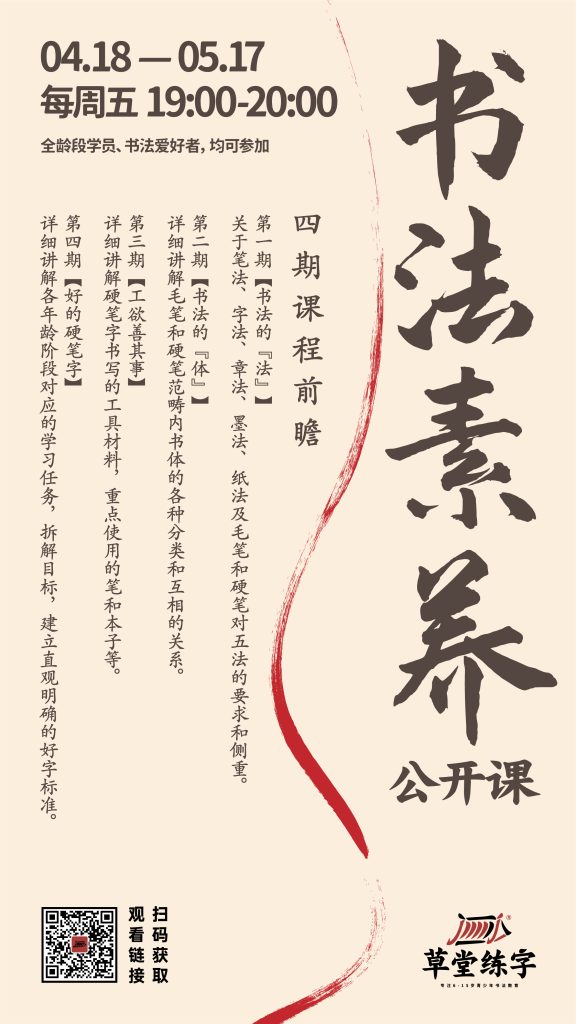 04.18 — 05.17
每周五 19:00-20:00
全龄段学员、书法爱好者，均可参加
书法素养
公开课
四期课程前瞻
第一期【书法的『法』】
关于笔法、字法、章法、墨法、纸法及毛笔和硬笔对五法的要求和侧重。
第二期【书法的『体』】
详细讲解毛笔和硬笔范畴内书体的各种分类和互相的关系。
第三期【工欲善其事】
详细讲解硬笔字书写的工具材料，重点使用的笔和本子等。
第四期【好的硬笔字】
详细讲解各年龄阶段对应的学习任务，拆解目标，建立直观明确的好字标准。
扫码获取
观看链接
®
草堂练字
专注6-15岁青少年书法教育